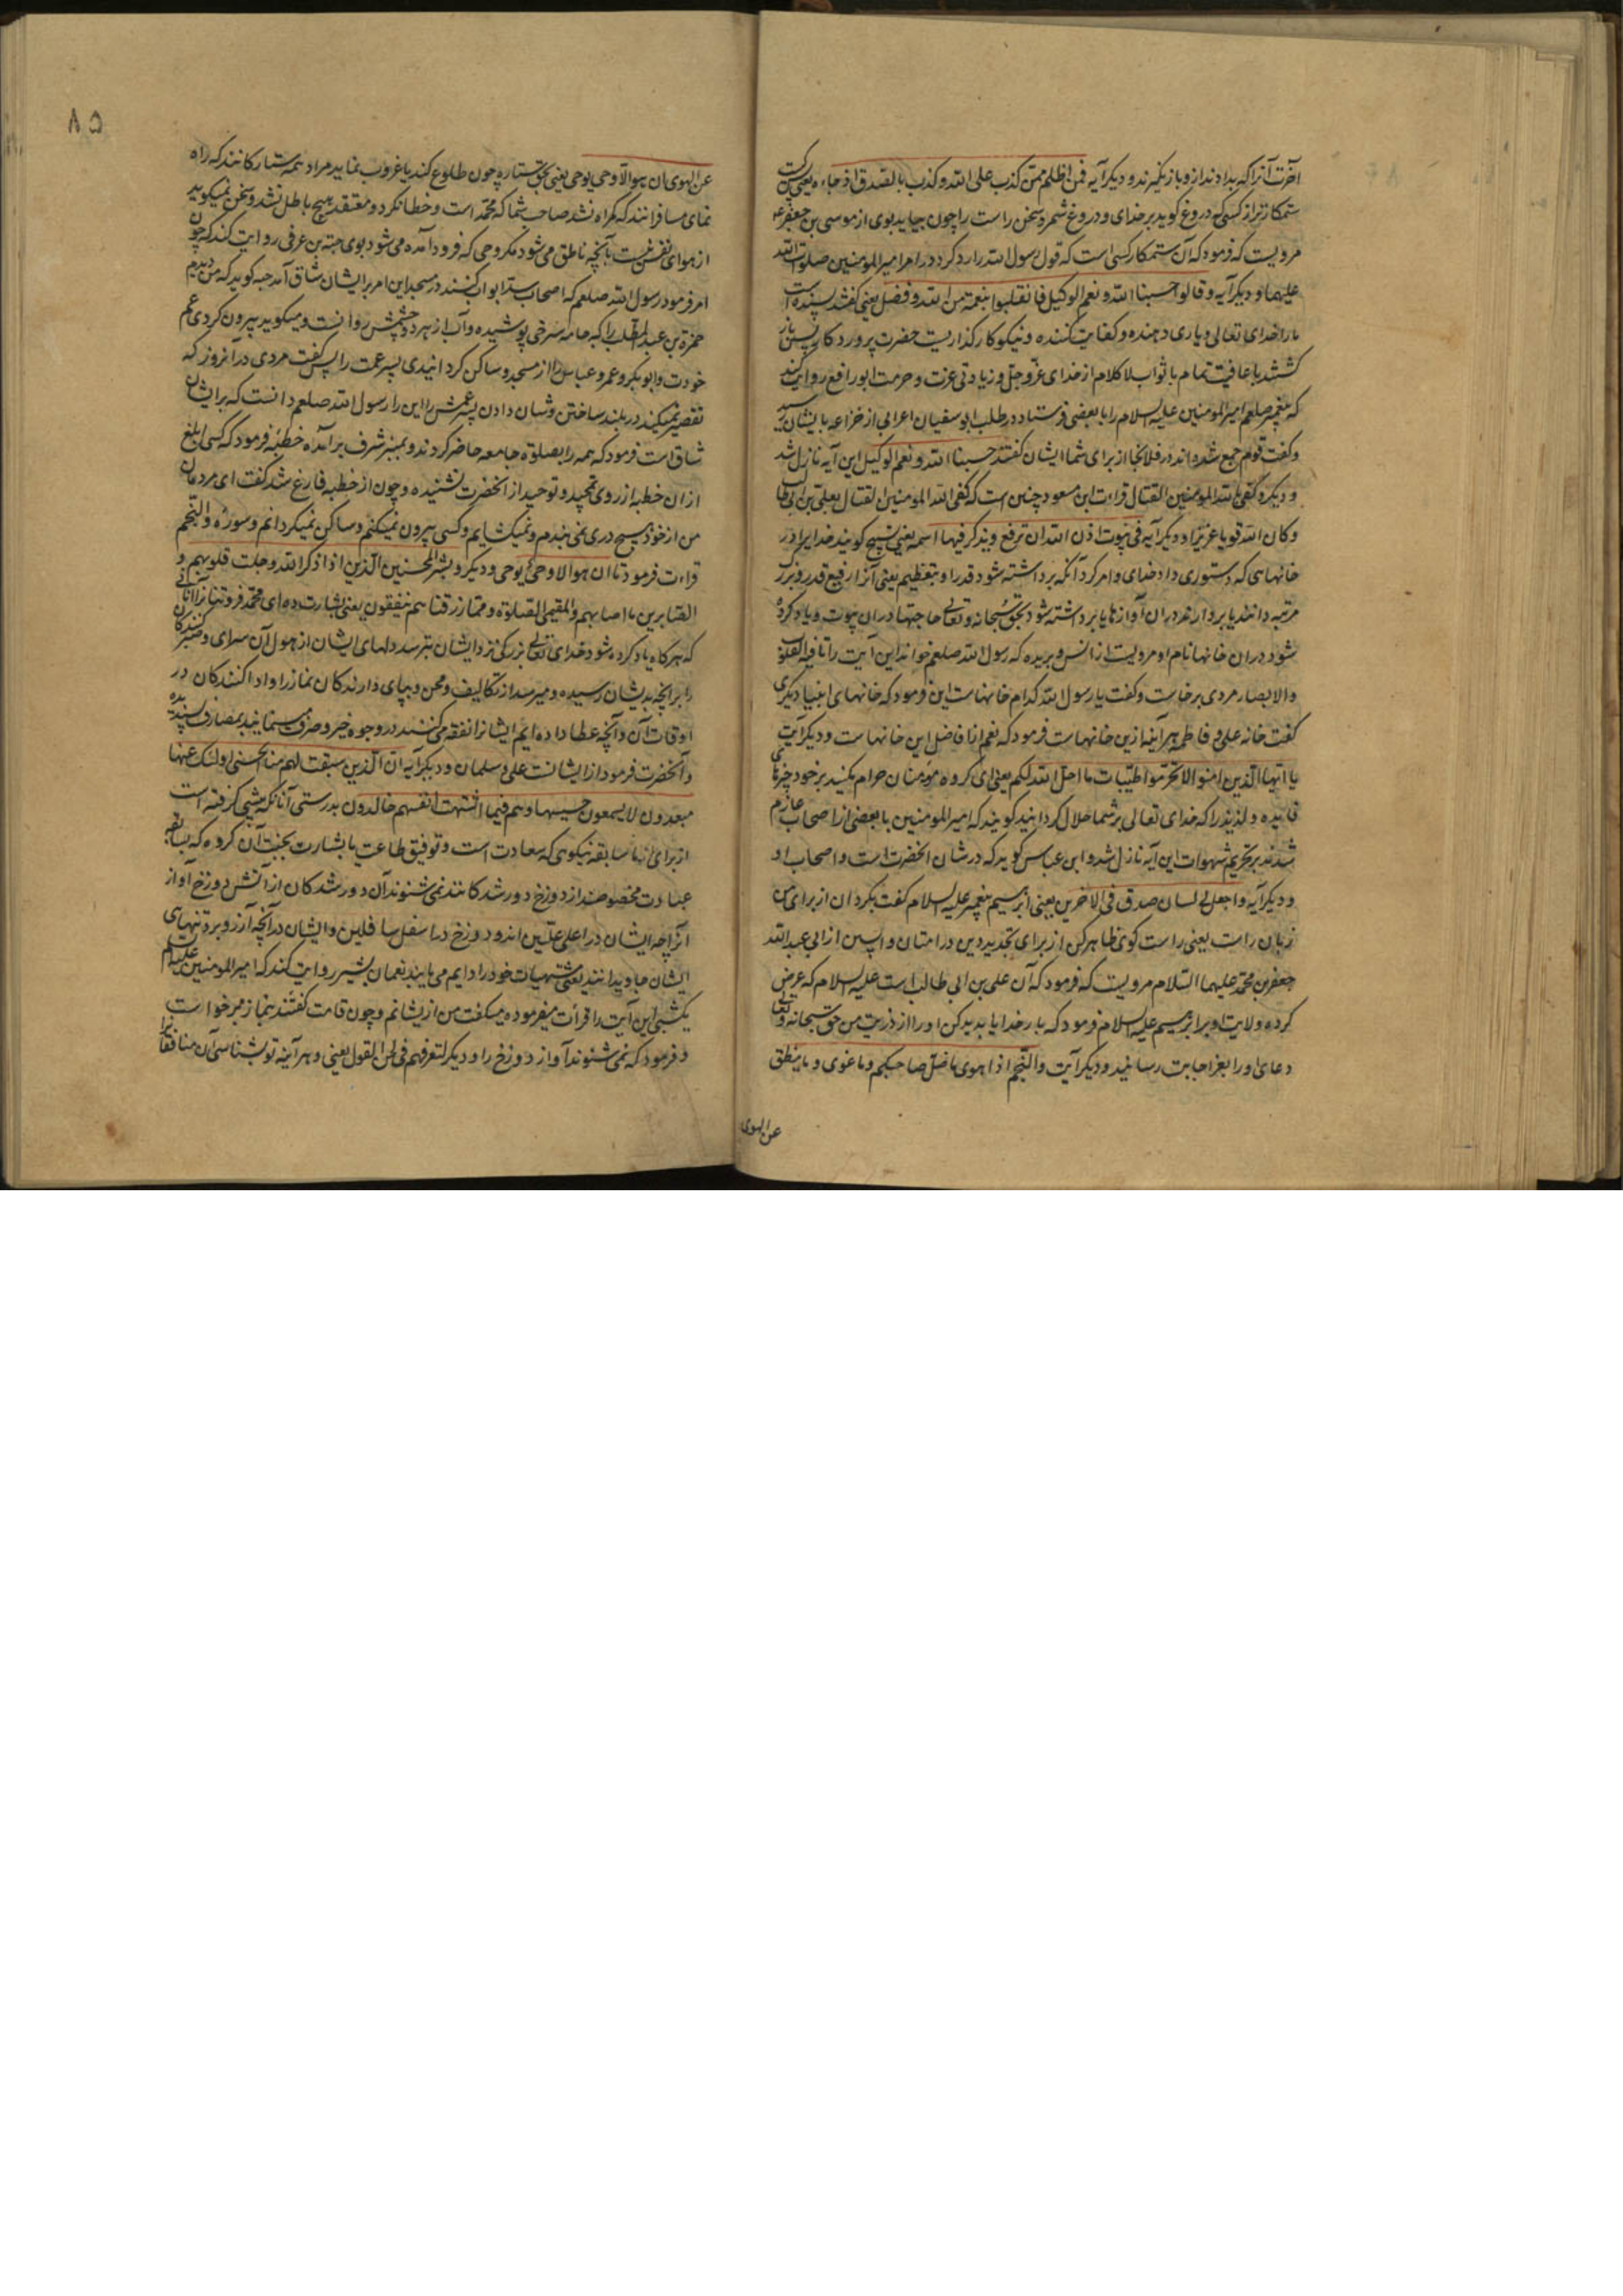 آخرت آنرا که بدادند ازو باز نگیرند و دیگر آیه فمن اظلم ممن کذب علی الله و کذب بالصدق اذ جاءه یعنی کیست
ستمکارتر از کسی که دروغ گوید بر خدای و دروغ شمرد سخن راست را چون بیاید بوی از موسی بن جعفر ع
مرویست که فرمود که آن ستمکار کسی است که قول رسول الله را رد کرد در امر امیرالمومنین صلوات الله
علیهما و دیگر آیه و قالوا حسبنا الله و نعم الوکیل فانقلبوا بنعمة من الله و فضل یعنی گفتند بسنده است
ما را خدای تعالی و یاری دهنده و کفایت کننده و نیکو کارگذاریست حضرت پروردگار پس باز
گشتند با عافیت تمام با ثواب لاکلام از خدای عز و جل و زیادتی عزت و حرمت ابو رافع روایت کند
که پیغمبر صلعم امیرالمومنین علیه السلام را با بعضی فرستاد در طلب ابو سفیان اعرابی از خزاعه بایشان رسید
و گفت قوم جمع شده‌اند در فلانجا از برای شما ایشان گفتند حسبنا الله و نعم الوکیل این آیه نازل شد
و دیگر و کفی الله المومنین القتال قراءت ابن مسعود چنین است که کفی الله المومنین القتال بعلی بن ابی طالب
و کان الله قویا عزیزا و دیگر آیه فی بیوت اذن الله ان ترفع و یذکر فیها اسمه یعنی تسبیح گویند خدایرا در
خانهایی که دستوری داد خدای و امر کرد آنکه برداشته شود قدر او بتعظیم یعنی آنرا رفیع قدر و بزرگ
مرتبه دانند یا بردارند در آن آوازها یا برداشته شود بحق سبحانه و تعالی حاجتها در ان بیوت و یاد کرده
شود در ان خانها نام او مرویست از انس و بریده که رسول الله صلعم خواند این آیت را تا فیه القلوب
والابصار مردی برخاست و گفت یا رسول الله کدام خانهاست این فرمود که خانهای انبیا دیگری
گفت خانه علی و فاطمه هرآینه ازین خانهاست فرمود که نعم انا فاضل این خانهاست و دیگر آیت
یا ایها الذین امنوا لا تحرموا طیبات ما احل الله لکم یعنی ای گروه مومنان حرام مکنید بر خود چیزهای
و لذیذ را که خدای تعالی بر شما حلال گردانید گویند که امیرالمومنین با بعضی از اصحاب عازم
شدند بر تحریم شهوات این آیه نازل شد و ابن عباس گوید که در شان آنحضرت است و اصحاب او
و دیگر آیه و اجعل لی لسان صدق فی الاخرین یعنی ابرهیم پیغمبر علیه السلام گفت بگردان از برای من
زبان راست یعنی راست گوی ظاهر کن از برای تجدید دین در امتان واپسین از ابی عبدالله
جعفر بن محمد علیهما السلام مرویست که فرمود که آن علی بن ابی طالب است علیه السلام که عرض
کرده ولایت او بر ابرهیم علیه السلام فرمود که بار خدایا پدید کن او را از ذریت من حق سبحانه و تعالی
دعای او را بعز اجابت رسانید و دیگر آیت والنجم اذا هوی ما ضل صاحبکم و ما غوی و ما ینطق
عن الهوی
۸۵
عن الهوی ان هو الا وحی یوحی یعنی بحق ستاره چون طلوع کند یا غروب نماید مراد همه ستارگانند که راه
نمای مسافرانند که گمراه نشد صاحب شما که محمد است و خطا نکرد و معتقد هیچ باطل نشد و سخن نمیگوید
از هوای نفس نیست آنچه ناطق می‌شود مگر وحی که فرود آمده می‌شود بوی حبه بن عرنی روایت کند که چون
امر فرمود رسول الله صلعم که اصحاب سد ابواب کنند در مسجد این امر بر ایشان شاق آمد حبه گوید که من دیدم
حمزة بن عبد المطلب را که جامه سرخی پوشیده و آب از هر دو چشمش روانست و میگوید بیرون کردی عم
خودت و ابو بکر و عمر و عباس را از مسجد و ساکن گردانیدی پسر عمت را پس گفت مردی در آنروز که
تقصیر نمیکند در بلند ساختن و شان دادن پسر عمش را این را رسول الله صلعم دانست که بر ایشان
شاق است فرمود که همه را بصلوة جامعه حاضر کردند و بمنبر شرف بر آمده خطبه فرمود که کسی ابلغ
از ان خطبه از روی تمجید و توحید از آنحضرت نشنیده و چون از خطبه فارغ شد گفت ای مردمان
من از خود هیچ دری نمی بندم و نمیگشایم و کسی بیرون نمیکنم و ساکن نمیگردانم و سوره والنجم
قراءت فرمود تا ان هو الا وحی یوحی و دیگر و بشر المحسنین الذین اذا ذکر الله وجلت قلوبهم و
الصابرین ما اصابهم والمقیمی الصلوة و مما رزقناهم ینفقون یعنی بشارت ده ای محمد فروتنانرا آنانی
که هرگاه یاد کرده شود خدای تعالی بزرگ نزد ایشان بترسد دلهای ایشان از هول آن سرای و صبر کنندگان
را بر آنچه بدیشان رسیده و میرسد از تکالیف و محن و بپای دارندگان نماز را و ادا کنندگان در
اوقات آن و آنچه عطا داده ایم ایشانرا نفقه می‌کنند در وجوه خیر و صرف مینمایند بمصارف پسندیده
و آنحضرت فرمود از ایشانست علی و سلمان و دیگر آیه ان الذین سبقت لهم منا الحسنی اولئک عنها
مبعدون لا یسمعون حسیسها و هم فیما اشتهت انفسهم خالدون بدرستی آنانکه پیشی گرفته است
از برای از ما سابقه نیکویی که سعادت است و توفیق طاعت یا بشارت بجنت آن گروه که بسابقه
عبادت مخصوصند از دوزخ دور شدگانند نمی شنوند آن دور شدگان از آتش دوزخ آواز
آنرا چه ایشان در اعلی علیین اند و دوزخ در اسفل سافلین و ایشان در آنچه آرزو برد تنهای
ایشان جاویدانند یعنی مشتهیات خود را دایم می یابند نعمان بشیر روایت کند که امیرالمومنین علیه السلام
یکشبی این آیت را قرأت میفرمود و میگفت من ازیشانم و چون قامت گفتند بنماز برخواست
و فرمود که نمی شنوند آواز دوزخ را و دیگر لتعرفنهم فی لحن القول یعنی و هر آینه تو بشناسی آن منافقانرا